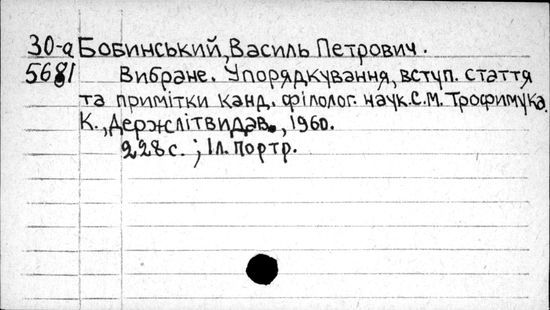 30-а Бобинський, Василь Петрович.
5681 Вибране. Упорядкування, вступ. стаття
та примітки канд. філолог. наук. С.М. Трофимука.
К., Держлітвидав., 1960.
228 с. ; Іл. портр.